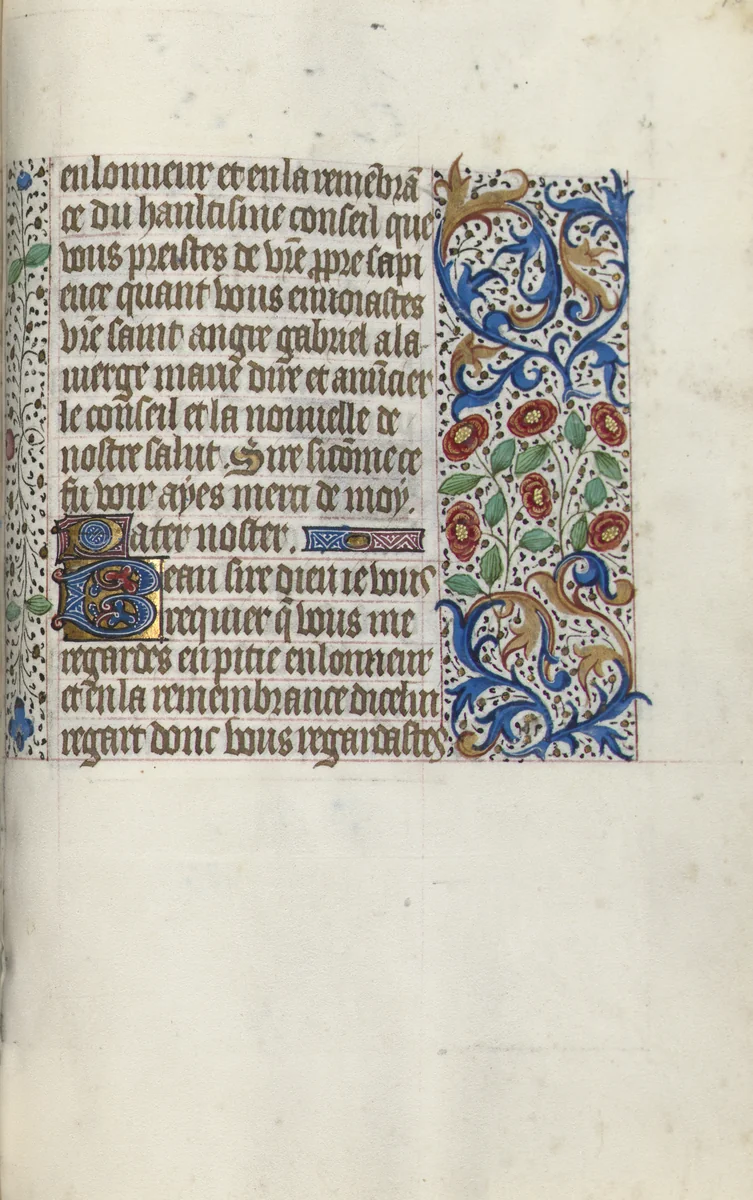 en lonneur et en la remẽbrã
ce du haultisme conseil que
vous preistes de vr̃e ꝓpre sapi
ence quant vous enuoiastes
vr̃e saint angre gabriel a la
vierge marie dir̃e et anũcier
le conseil et la nouuelle de
nostre salut. Sire si cõme ce
fu voir ayes merci de moy.
Pater noster.
Beau sire dieu ie vous
requier q̃ vous me
regardes en pitie en lonneur
et ẽn la remembrance dicelui
regart donc vous regardastes